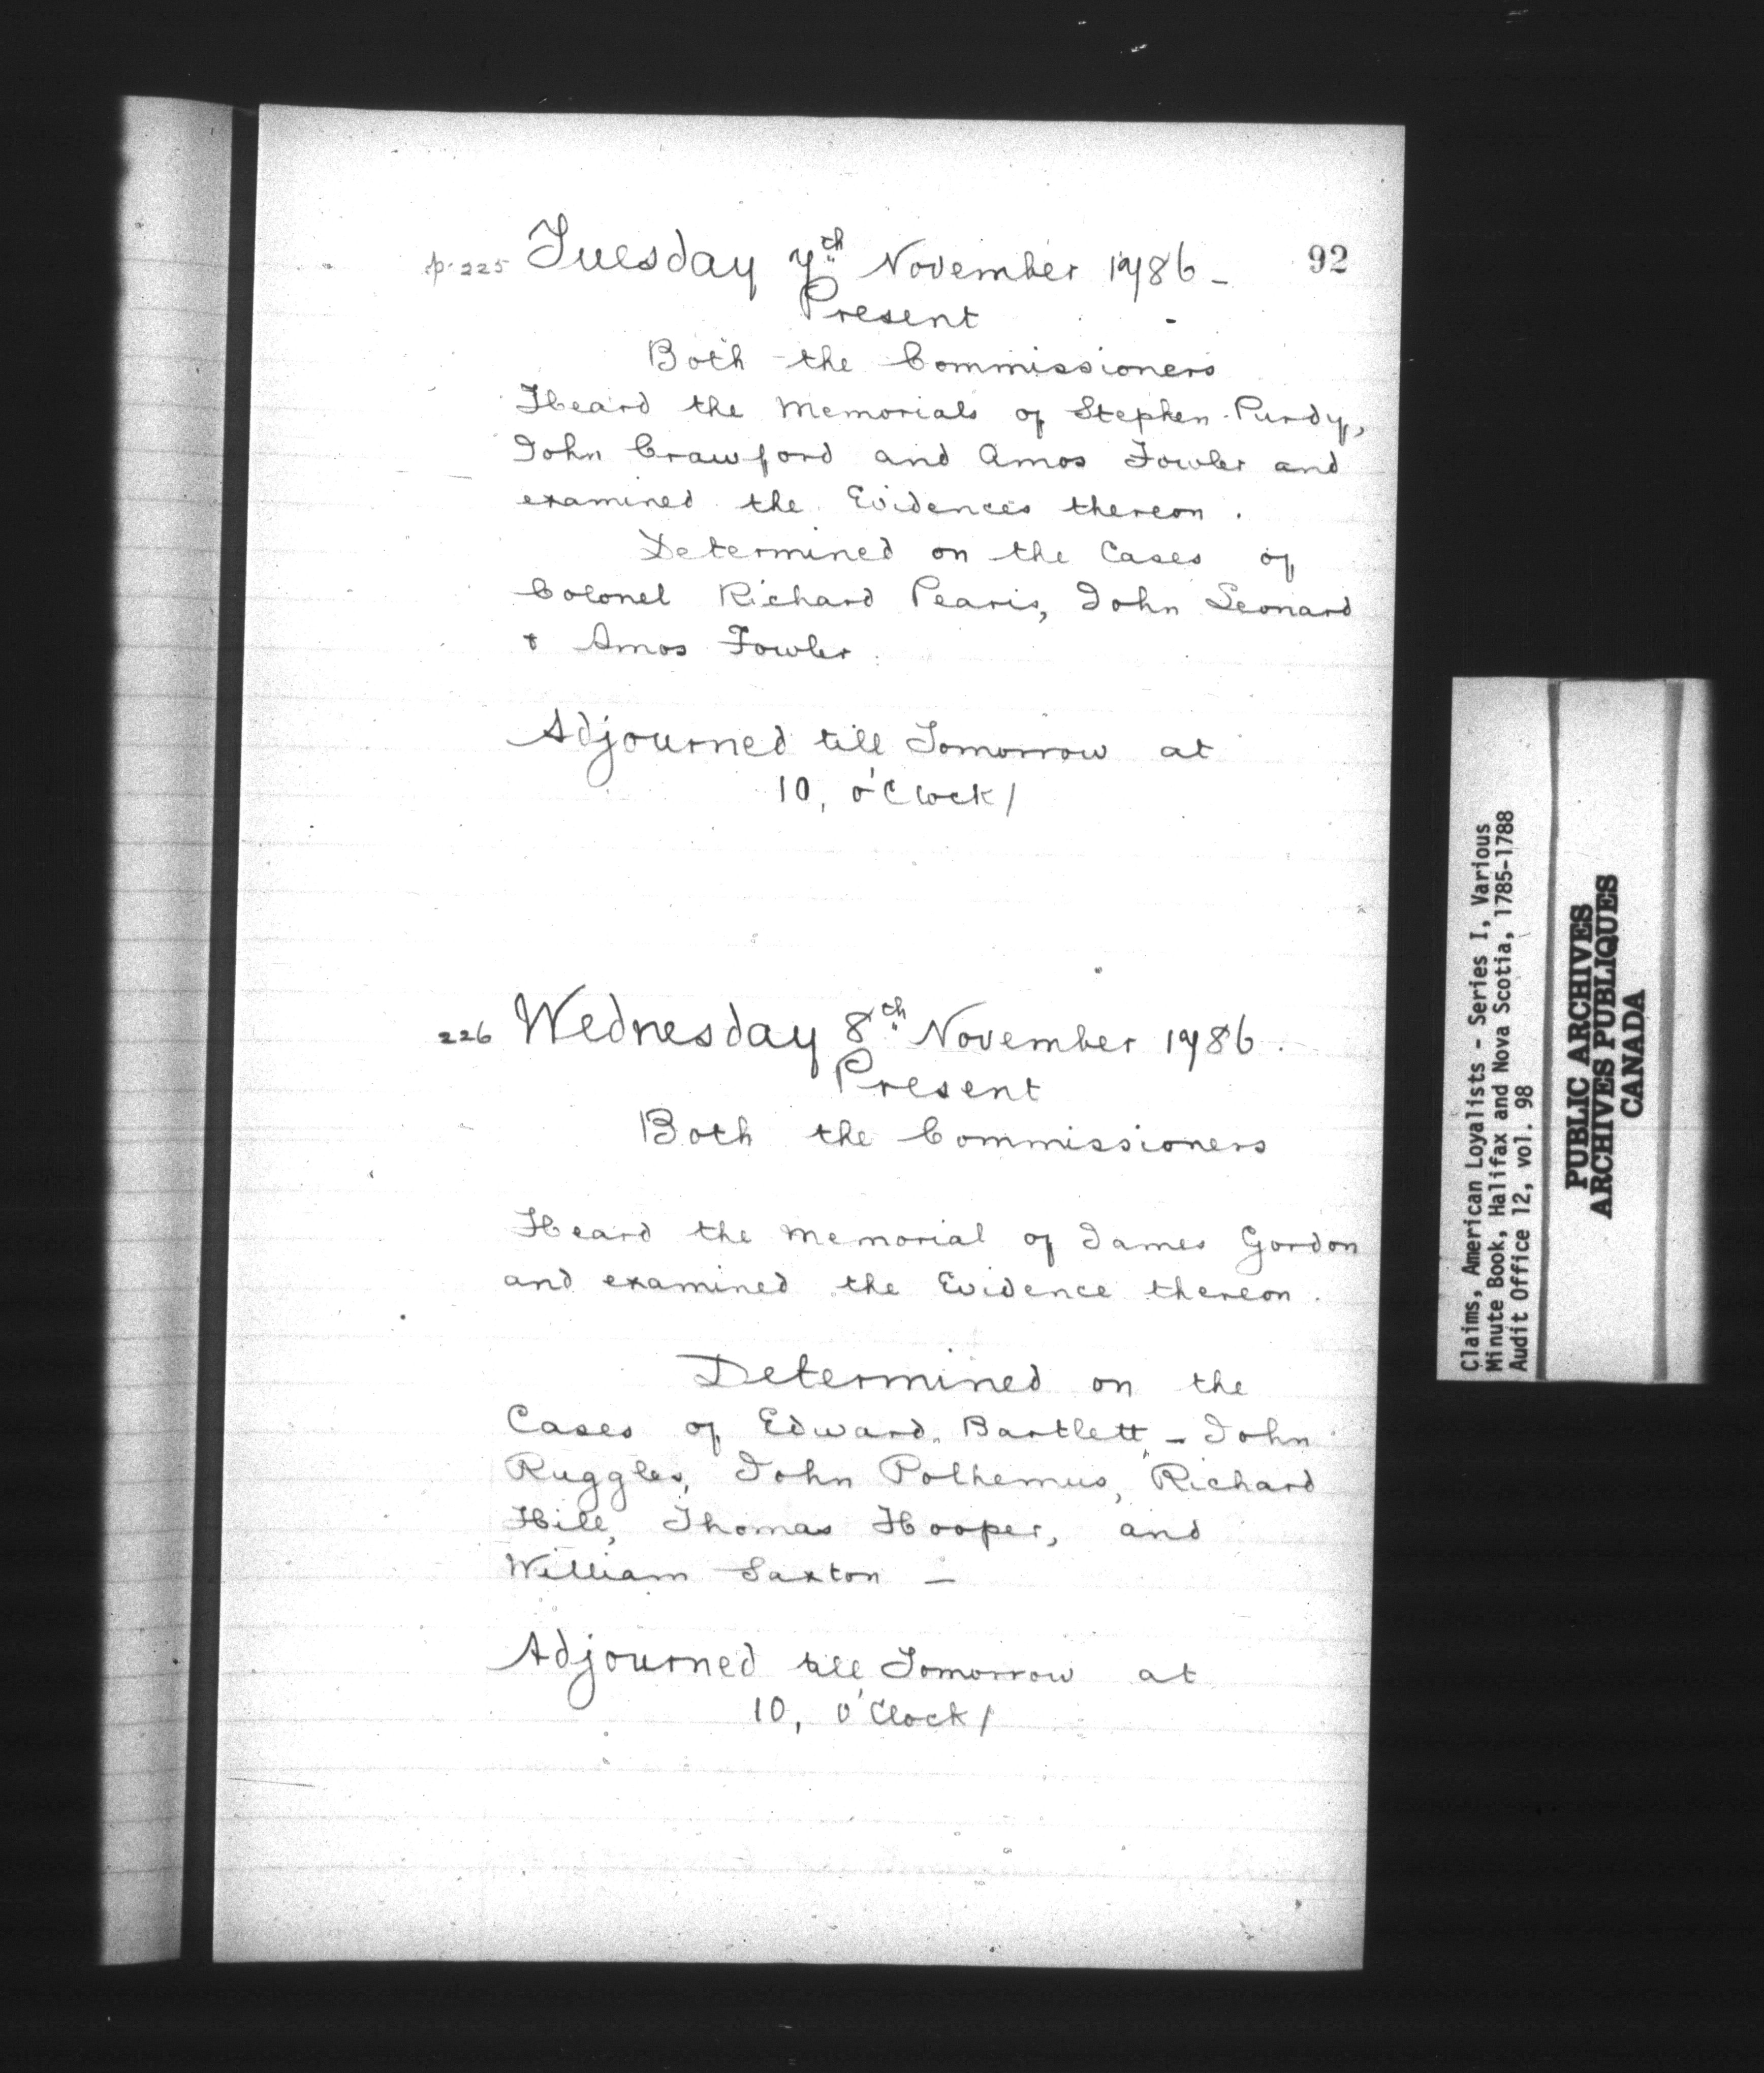 92
p. 225 Tuesday 7th November 1786 -
Present
Both the Commissioners
Heard the Memorials of Stephen Purdy,
John Crawford and Amos Fowler and
examined the Evidences thereon.
Determined on the Cases of
Colonel Richard Pearis, John Leonard
& Amos Fowler.
Adjourned till Tomorrow at
10, o'Clock/
226 Wednesday 8th November 1786.
Present
Both the Commissioners
Heard the Memorial of James Gordon
and examined the Evidence thereon.
Determined on the
Cases of Edward Bartlett, - John
Ruggles, John Polhemus, Richard
Hill, Thomas Hooper, and
William Saxton -
Adjourned till Tomorrow at
10, o'Clock/
Claims, American Loyalists - Series I, Various
Minute Book, Halifax and Nova Scotia, 1785-1788
Audit Office 12, vol. 98
PUBLIC ARCHIVES
ARCHIVES PUBLIQUES
CANADA